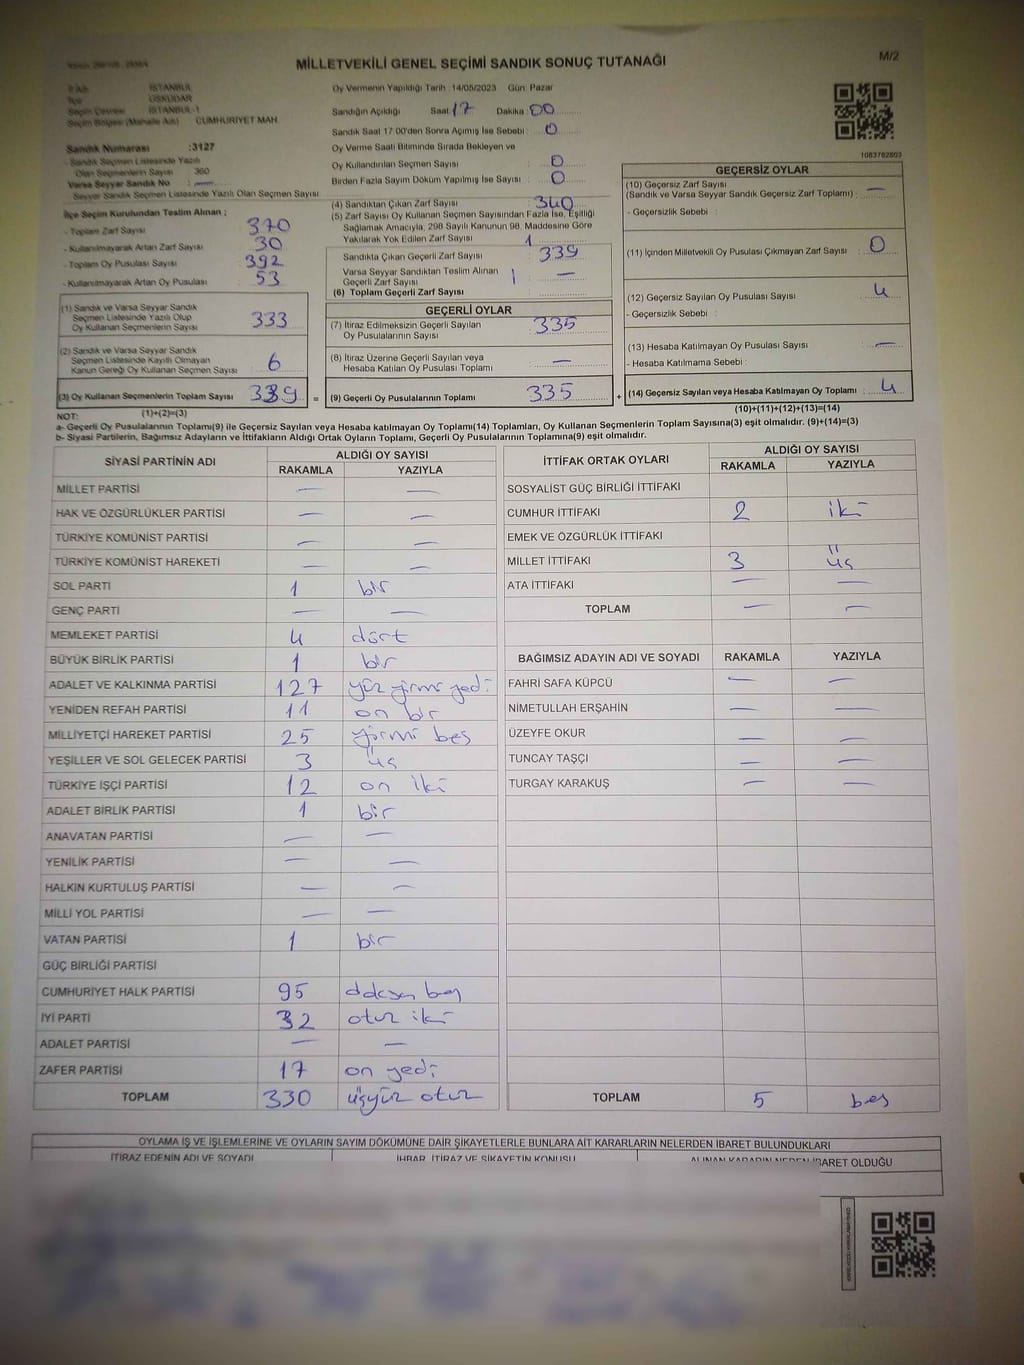 MİLLETVEKİLİ GENEL SEÇİMİ SANDIK SONUÇ TUTANAĞI
M/2
İl Adı : İSTANBUL
İlçe : ÜSKÜDAR
Seçim Çevresi : İSTANBUL-1
Seçim Bölgesi (Mahalle Adı) : CUMHURİYET MAH.
Sandık Numarası :3127
- Sandık Seçmen Listesinde Yazılı
Olan Seçmenlerin Sayısı : 360
Varsa Seyyar Sandık No : —
Seyyar Sandık Seçmen Listesinde Yazılı Olan Seçmen Sayısı
İlçe Seçim Kurulundan Teslim Alınan ;
- Toplam Zarf Sayısı 370
- Kullanılmayarak Artan Zarf Sayısı 30
- Toplam Oy Pusulası Sayısı 392
- Kullanılmayarak Artan Oy Pusulası 53
(1) Sandık ve Varsa Seyyar Sandık
Seçmen Listesinde Yazılı Olup
Oy Kullanan Seçmenlerin Sayısı 333
(2) Sandık ve Varsa Seyyar Sandık
Seçmen Listesinde Kayıtlı Olmayan
Kanun Gereği Oy Kullanan Seçmen Sayısı 6
(3) Oy Kullanan Seçmenlerin Toplam Sayısı 339
(1)+(2)=(3)
Oy Vermenin Yapıldığı Tarih : 14/05/2023 Gün: Pazar
Sandığın Açıldığı Saat : 17 Dakika : 00
Sandık Saat 17:00'den Sonra Açılmış İse Sebebi : 0
Oy Verme Saati Bitiminde Sırada Bekleyen ve
Oy Kullandırılan Seçmen Sayısı : 0
Birden Fazla Sayım Döküm Yapılmış İse Sayısı : 0
(4) Sandıktan Çıkan Zarf Sayısı : 340
(5) Zarf Sayısı Oy Kullanan Seçmen Sayısından Fazla İse, Eşitliği
Sağlamak Amacıyla, 298 Sayılı Kanunun 98. Maddesine Göre
Yakılarak Yok Edilen Zarf Sayısı : 1
Sandıkta Çıkan Geçerli Zarf Sayısı : 339
Varsa Seyyar Sandıktan Teslim Alınan
Geçerli Zarf Sayısı —
(6) Toplam Geçerli Zarf Sayısı
GEÇERLİ OYLAR
(7) İtiraz Edilmeksizin Geçerli Sayılan
Oy Pusulalarının Sayısı 335
(8) İtiraz Üzerine Geçerli Sayılan veya
Hesaba Katılan Oy Pusulası Toplamı —
= (9) Geçerli Oy Pusulalarının Toplamı 335
1083762803
GEÇERSİZ OYLAR
(10) Geçersiz Zarf Sayısı
(Sandık ve Varsa Seyyar Sandık Geçersiz Zarf Toplamı) : —
- Geçersizlik Sebebi :
(11) İçinden Milletvekili Oy Pusulası Çıkmayan Zarf Sayısı : 0
(12) Geçersiz Sayılan Oy Pusulası Sayısı : 4
- Geçersizlik Sebebi :
(13) Hesaba Katılmayan Oy Pusulası Sayısı : —
- Hesaba Katılmama Sebebi :
+ (14) Geçersiz Sayılan veya Hesaba Katılmayan Oy Toplamı : 4
(10)+(11)+(12)+(13)=(14)
NOT:
a- Geçerli Oy Pusulalarının Toplamı(9) ile Geçersiz Sayılan veya Hesaba katılmayan Oy Toplamı(14) Toplamları, Oy Kullanan Seçmenlerin Toplam Sayısına(3) eşit olmalıdır. (9)+(14)=(3)
b- Siyasi Partilerin, Bağımsız Adayların ve İttifakların Aldığı Ortak Oyların Toplamı, Geçerli Oy Pusulalarının Toplamına(9) eşit olmalıdır.
SİYASİ PARTİNİN ADI ALDIĞI OY SAYISI
RAKAMLA YAZIYLA
MİLLET PARTİSİ — —
HAK VE ÖZGÜRLÜKLER PARTİSİ — —
TÜRKİYE KOMÜNİST PARTİSİ — —
TÜRKİYE KOMÜNİST HAREKETİ — —
SOL PARTİ 1 bir
GENÇ PARTİ — —
MEMLEKET PARTİSİ 4 dört
BÜYÜK BİRLİK PARTİSİ 1 bir
ADALET VE KALKINMA PARTİSİ 127 yüz yirmi yedi
YENİDEN REFAH PARTİSİ 11 on bir
MİLLİYETÇİ HAREKET PARTİSİ 25 yirmi beş
YEŞİLLER VE SOL GELECEK PARTİSİ 3 üç
TÜRKİYE İŞÇİ PARTİSİ 12 on iki
ADALET BİRLİK PARTİSİ 1 bir
ANAVATAN PARTİSİ — —
YENİLİK PARTİSİ — —
HALKIN KURTULUŞ PARTİSİ — —
MİLLİ YOL PARTİSİ — —
VATAN PARTİSİ 1 bir
GÜÇ BİRLİĞİ PARTİSİ
CUMHURİYET HALK PARTİSİ 95 doksan beş
İYİ PARTİ 32 otuz iki
ADALET PARTİSİ — —
ZAFER PARTİSİ 17 on yedi
TOPLAM 330 üçyüz otuz
İTTİFAK ORTAK OYLARI ALDIĞI OY SAYISI
RAKAMLA YAZIYLA
SOSYALİST GÜÇ BİRLİĞİ İTTİFAKI
CUMHUR İTTİFAKI 2 iki
EMEK VE ÖZGÜRLÜK İTTİFAKI
MİLLET İTTİFAKI 3 üç
ATA İTTİFAKI — —
TOPLAM — —
BAĞIMSIZ ADAYIN ADI VE SOYADI RAKAMLA YAZIYLA
FAHRİ SAFA KÜPCÜ — —
NİMETULLAH ERŞAHİN — —
ÜZEYFE OKUR — —
TUNCAY TAŞÇI — —
TURGAY KARAKUŞ — —
TOPLAM 5 beş
OYLAMA İŞ VE İŞLEMLERİNE VE OYLARIN SAYIM DÖKÜMÜNE DAİR ŞİKAYETLERLE BUNLARA AİT KARARLARIN NELERDEN İBARET BULUNDUKLARI
İTİRAZ EDENİN ADI VE SOYADI İHBAR, İTİRAZ VE ŞİKAYETİN KONUSU ALINAN KARARIN NEDEN İBARET OLDUĞU